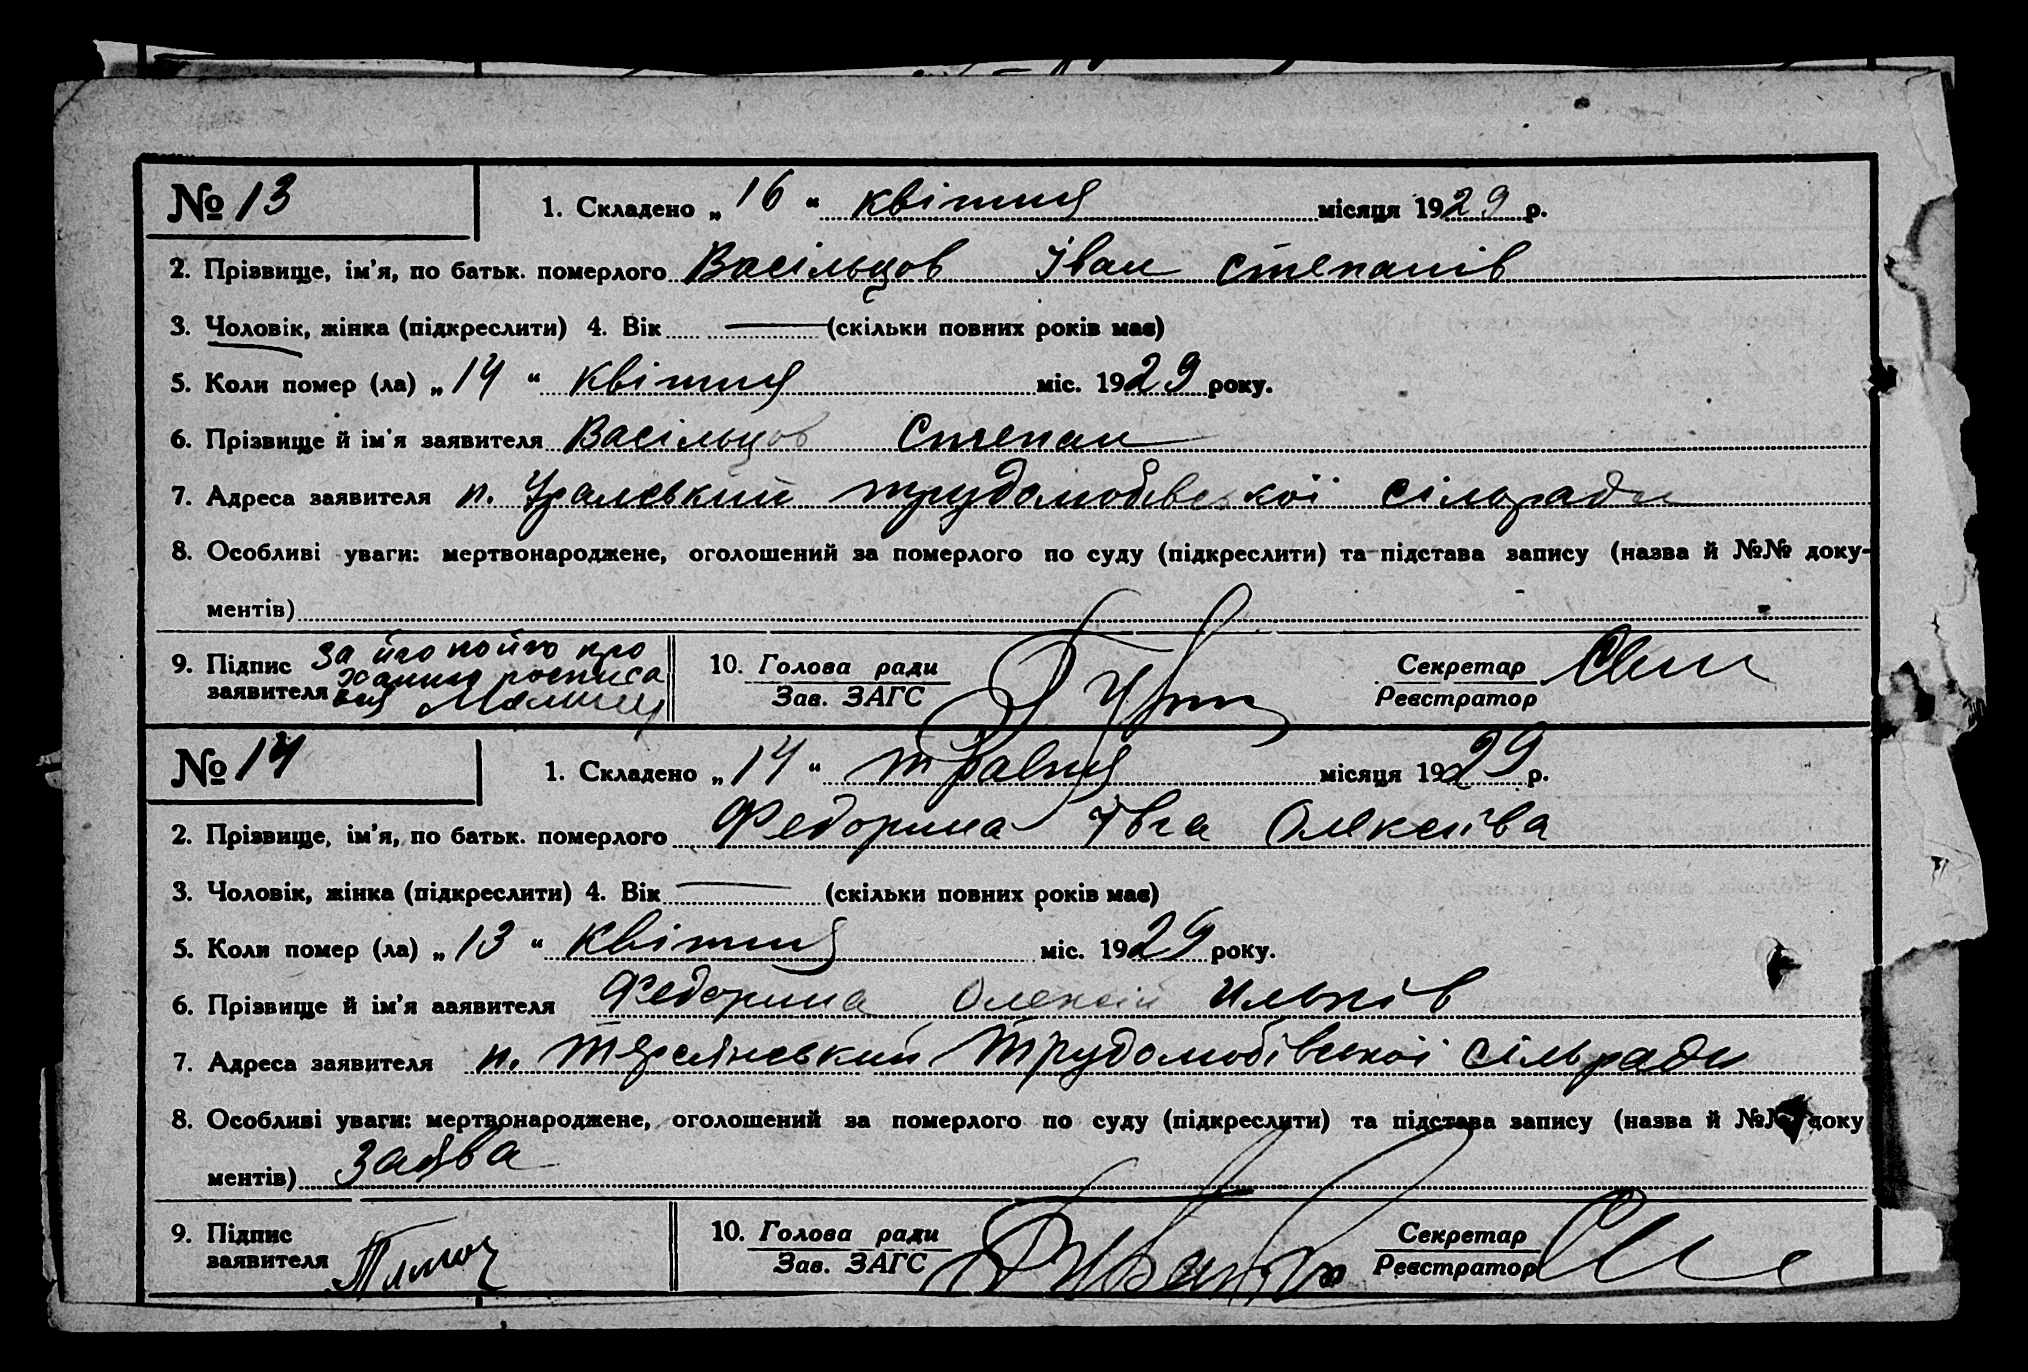 № 13
1. Складено „ 16 “ квітня місяця 1929 р.
2. Прізвище, ім'я, по батьк. померлого Васільцов Іван Степанів
3. Чоловік, жінка (підкреслити) 4. Вік — (скільки повних років має)
5. Коли помер (ла) „ 14 “ квітня міс. 1929 року.
6. Прізвище й ім'я заявителя Васільцов Степан
7. Адреса заявителя п. Уралський трудолюбівської сільради
8. Особливі уваги: мертвонароджене, оголошений за померлого по суду (підкреслити) та підстава запису (назва й №№ доку-
ментів)
9. Підпис заявителя За його
10. Голова ради
Зав. ЗАГС
Секретар
Реєстратор
№ 14
1. Складено „ 14 “ травня місяця 1929 р.
2. Прізвище, ім'я, по батьк. померлого Федорина Ївга Олексіїва
3. Чоловік, жінка (підкреслити) 4. Вік — (скільки повних років має)
5. Коли помер (ла) „ 13 “ квітня міс. 1929 року.
6. Прізвище й ім'я ааявителя Федорина Олексій Ильків
7. Адреса заявителя п. Трудолюбівської сільради
8. Особливі уваги: мертвонароджене, оголошений за померлого по суду (підкреслити) та підстава запису (назва й №№ доку
ментів) Заява
9. Підпис
заявителя
10. Голова ради
Зав. ЗАГС
Секретар
Реєстратор